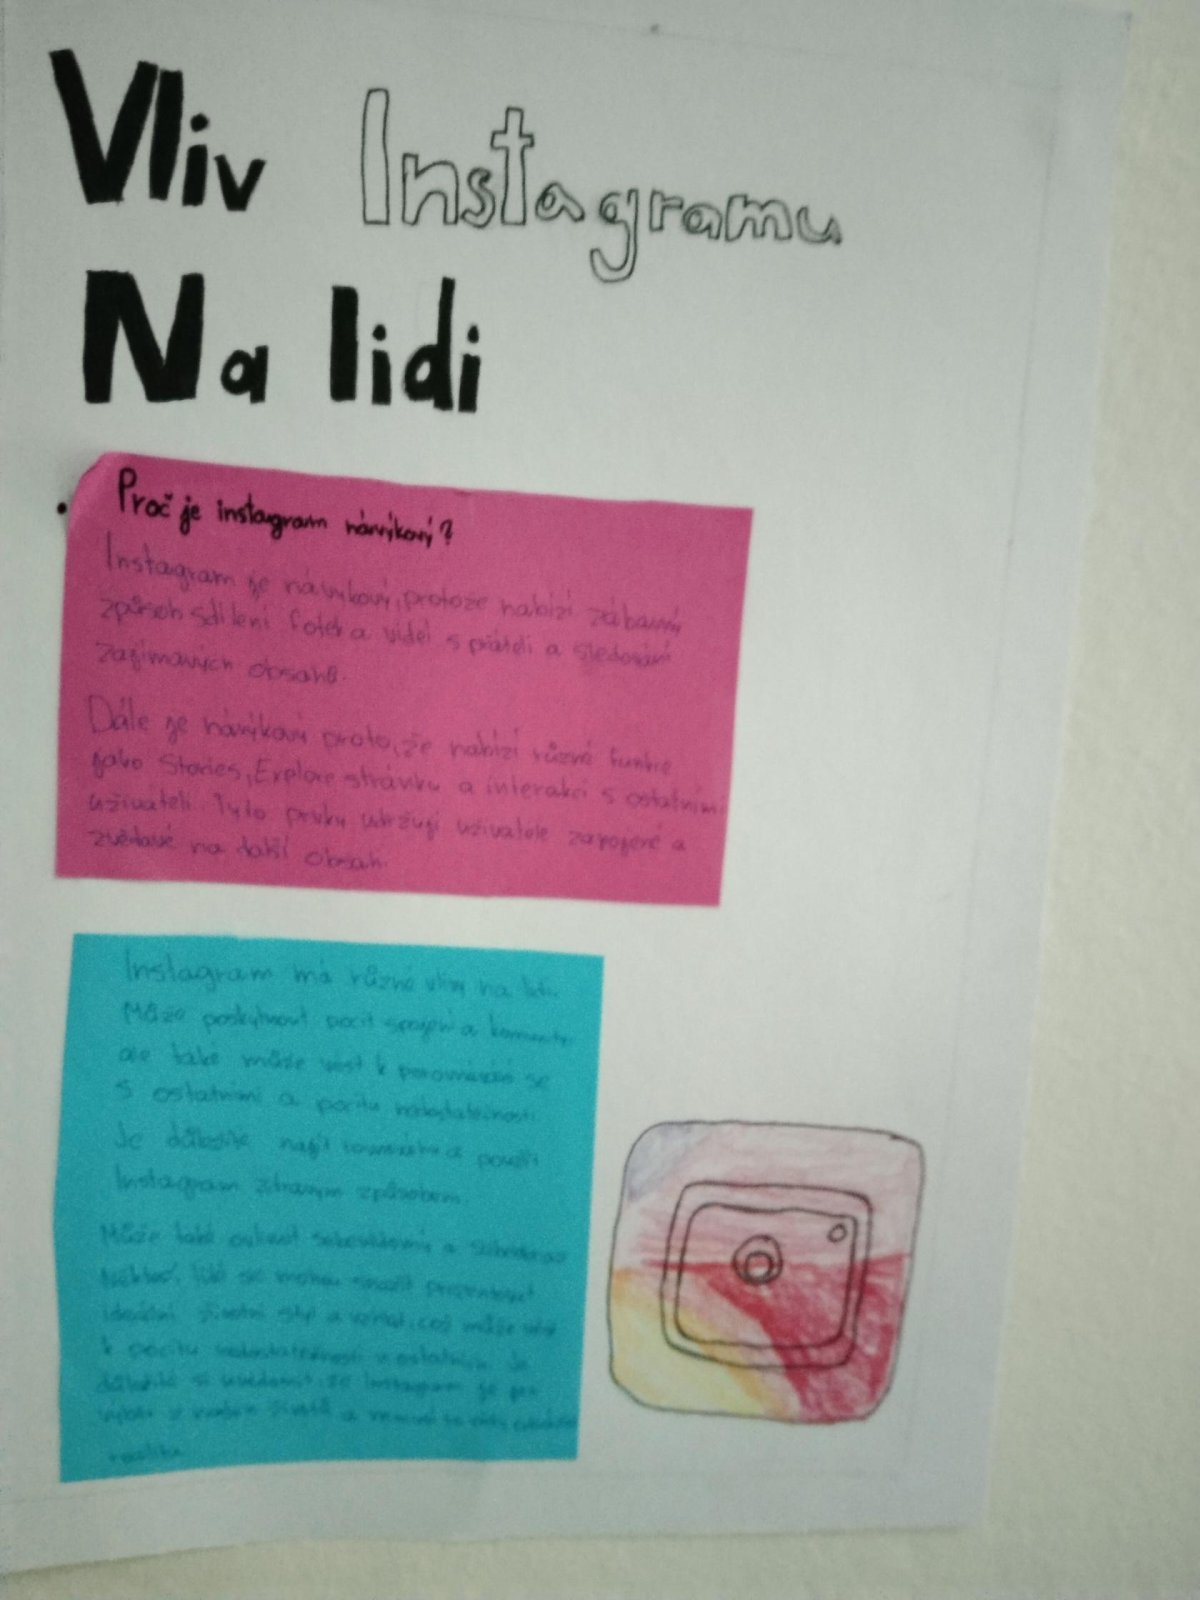 Vliv Instagramu
Na lidi
Proč je instagram návykový?
Instagram je návykový, protože nabízí zábavný
způsob sdílení fotek a videí s přáteli a sledování
zajímavých obsahů.
Dále je návykový proto, že nabízí různé funkce
jako Stories, Explore stránku a interakci s ostatními
uživateli. Tyto prvky udržují uživatele zapojené a
zvědavé na další obsah.
Instagram má různé vlivy na lidi.
Může poskytnout pocit spojení a komunity,
ale také může vést k porovnávání se
s ostatními a pocitu nedostatečnosti.
Je důležité najít rovnováhu a použít
Instagram zdravým způsobem.
Může také ovlivnit sebevědomí a
Lidi se mohou snažit prezentovat
ideální životní styl a což může vést
k pocitu nedostatečnosti u ostatních. Je
důležité si uvědomit, že Instagram je jen
výběr z života a
realitu.